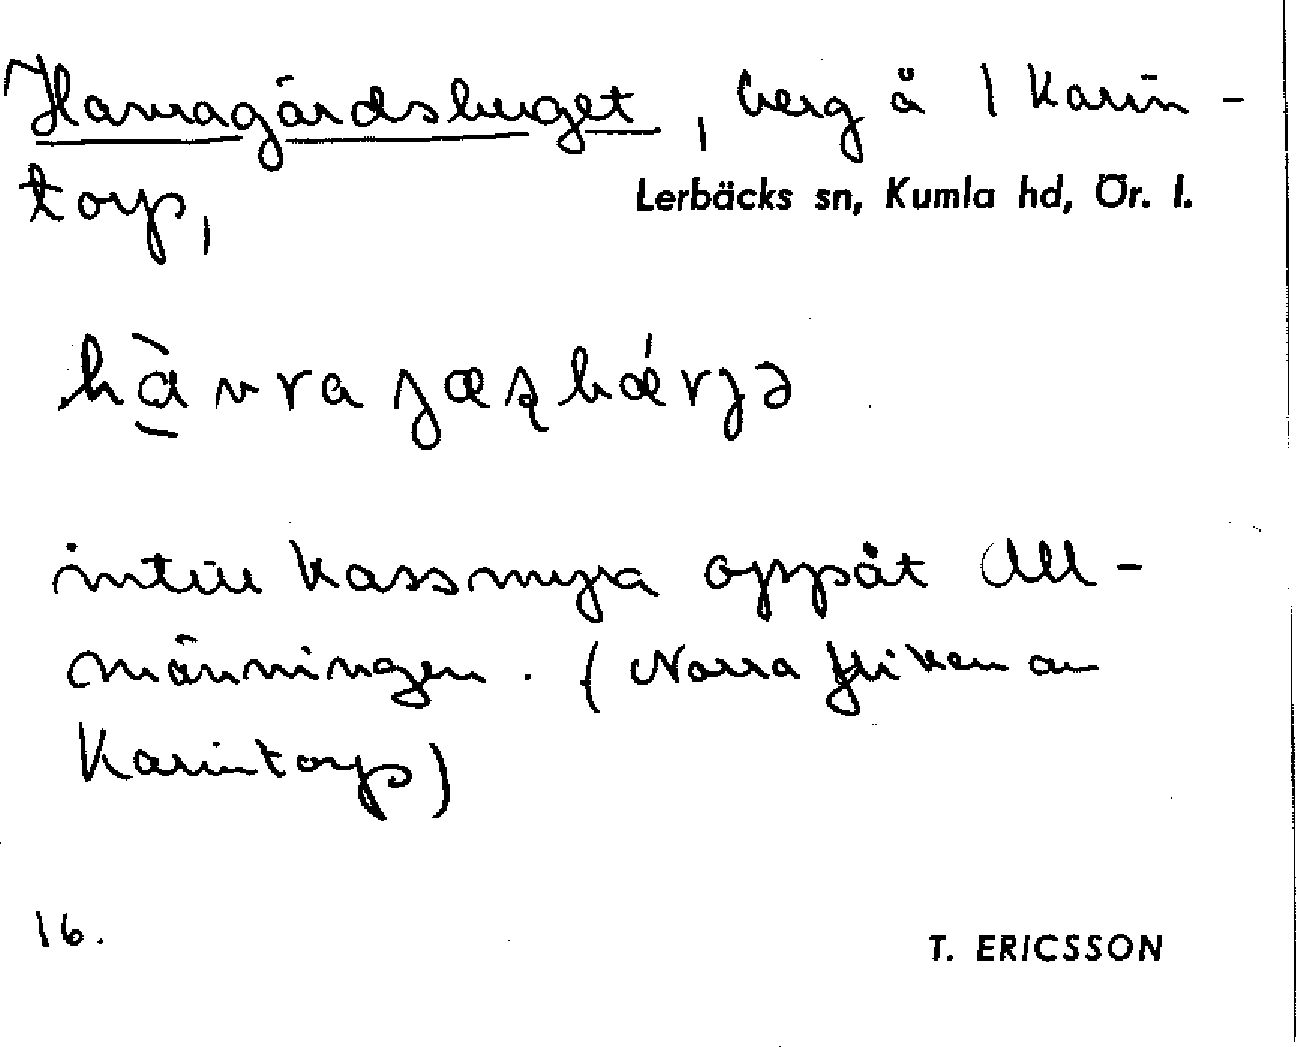 Havragärdsberget, berg å 1 Karin-
torp,
Lerbäcks sn, Kumla hd, Ör. l.
intill Kassmyra oppåt All-
männingen. (Norra fliken av
Karintorp)
16.
T. ERICSSON